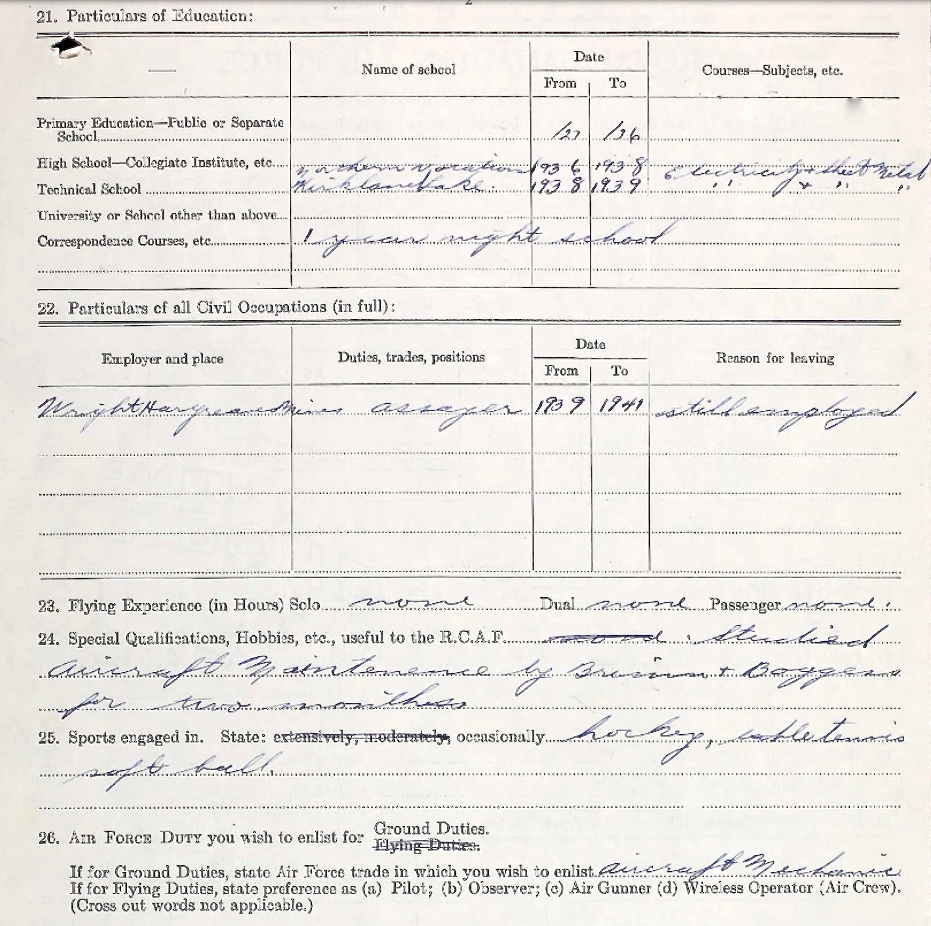 2
21. Particulars of Education:
Name of school Date Courses—Subjects, etc.
From To
Primary Education—Public or Separate
School /27 /36
High School—Collegiate Institute, etc. Northern Vocational 1936 1938 Electricity & Sheet Metal
Technical School Kirkland Lake. 1938 1939 " & " "
University or School other than above
Correspondence Courses, etc. 1 year night school
22. Particulars of all Civil Occupations (in full):
Employer and place Duties, trades, positions Date Reason for leaving
From To
Wright Hargreaves Mines assayer 1939 1941 still employed
23. Flying Experience (in Hours) Solo none Dual none Passenger none.
24. Special Qualifications, Hobbies, etc., useful to the R.C.A.F. none. Studied
Aircraft Maintenence by Brimm & Boggess
for two monthes
25. Sports engaged in. State: extensively, moderately, occasionally hockey, table tennis
soft ball.
26. AIR FORCE DUTY you wish to enlist for Ground Duties.
Flying Duties.
If for Ground Duties, state Air Force trade in which you wish to enlist aircraft Mechanic
If for Flying Duties, state preference as (a) Pilot; (b) Observer; (c) Air Gunner (d) Wireless Operator (Air Crew).
(Cross out words not applicable.)